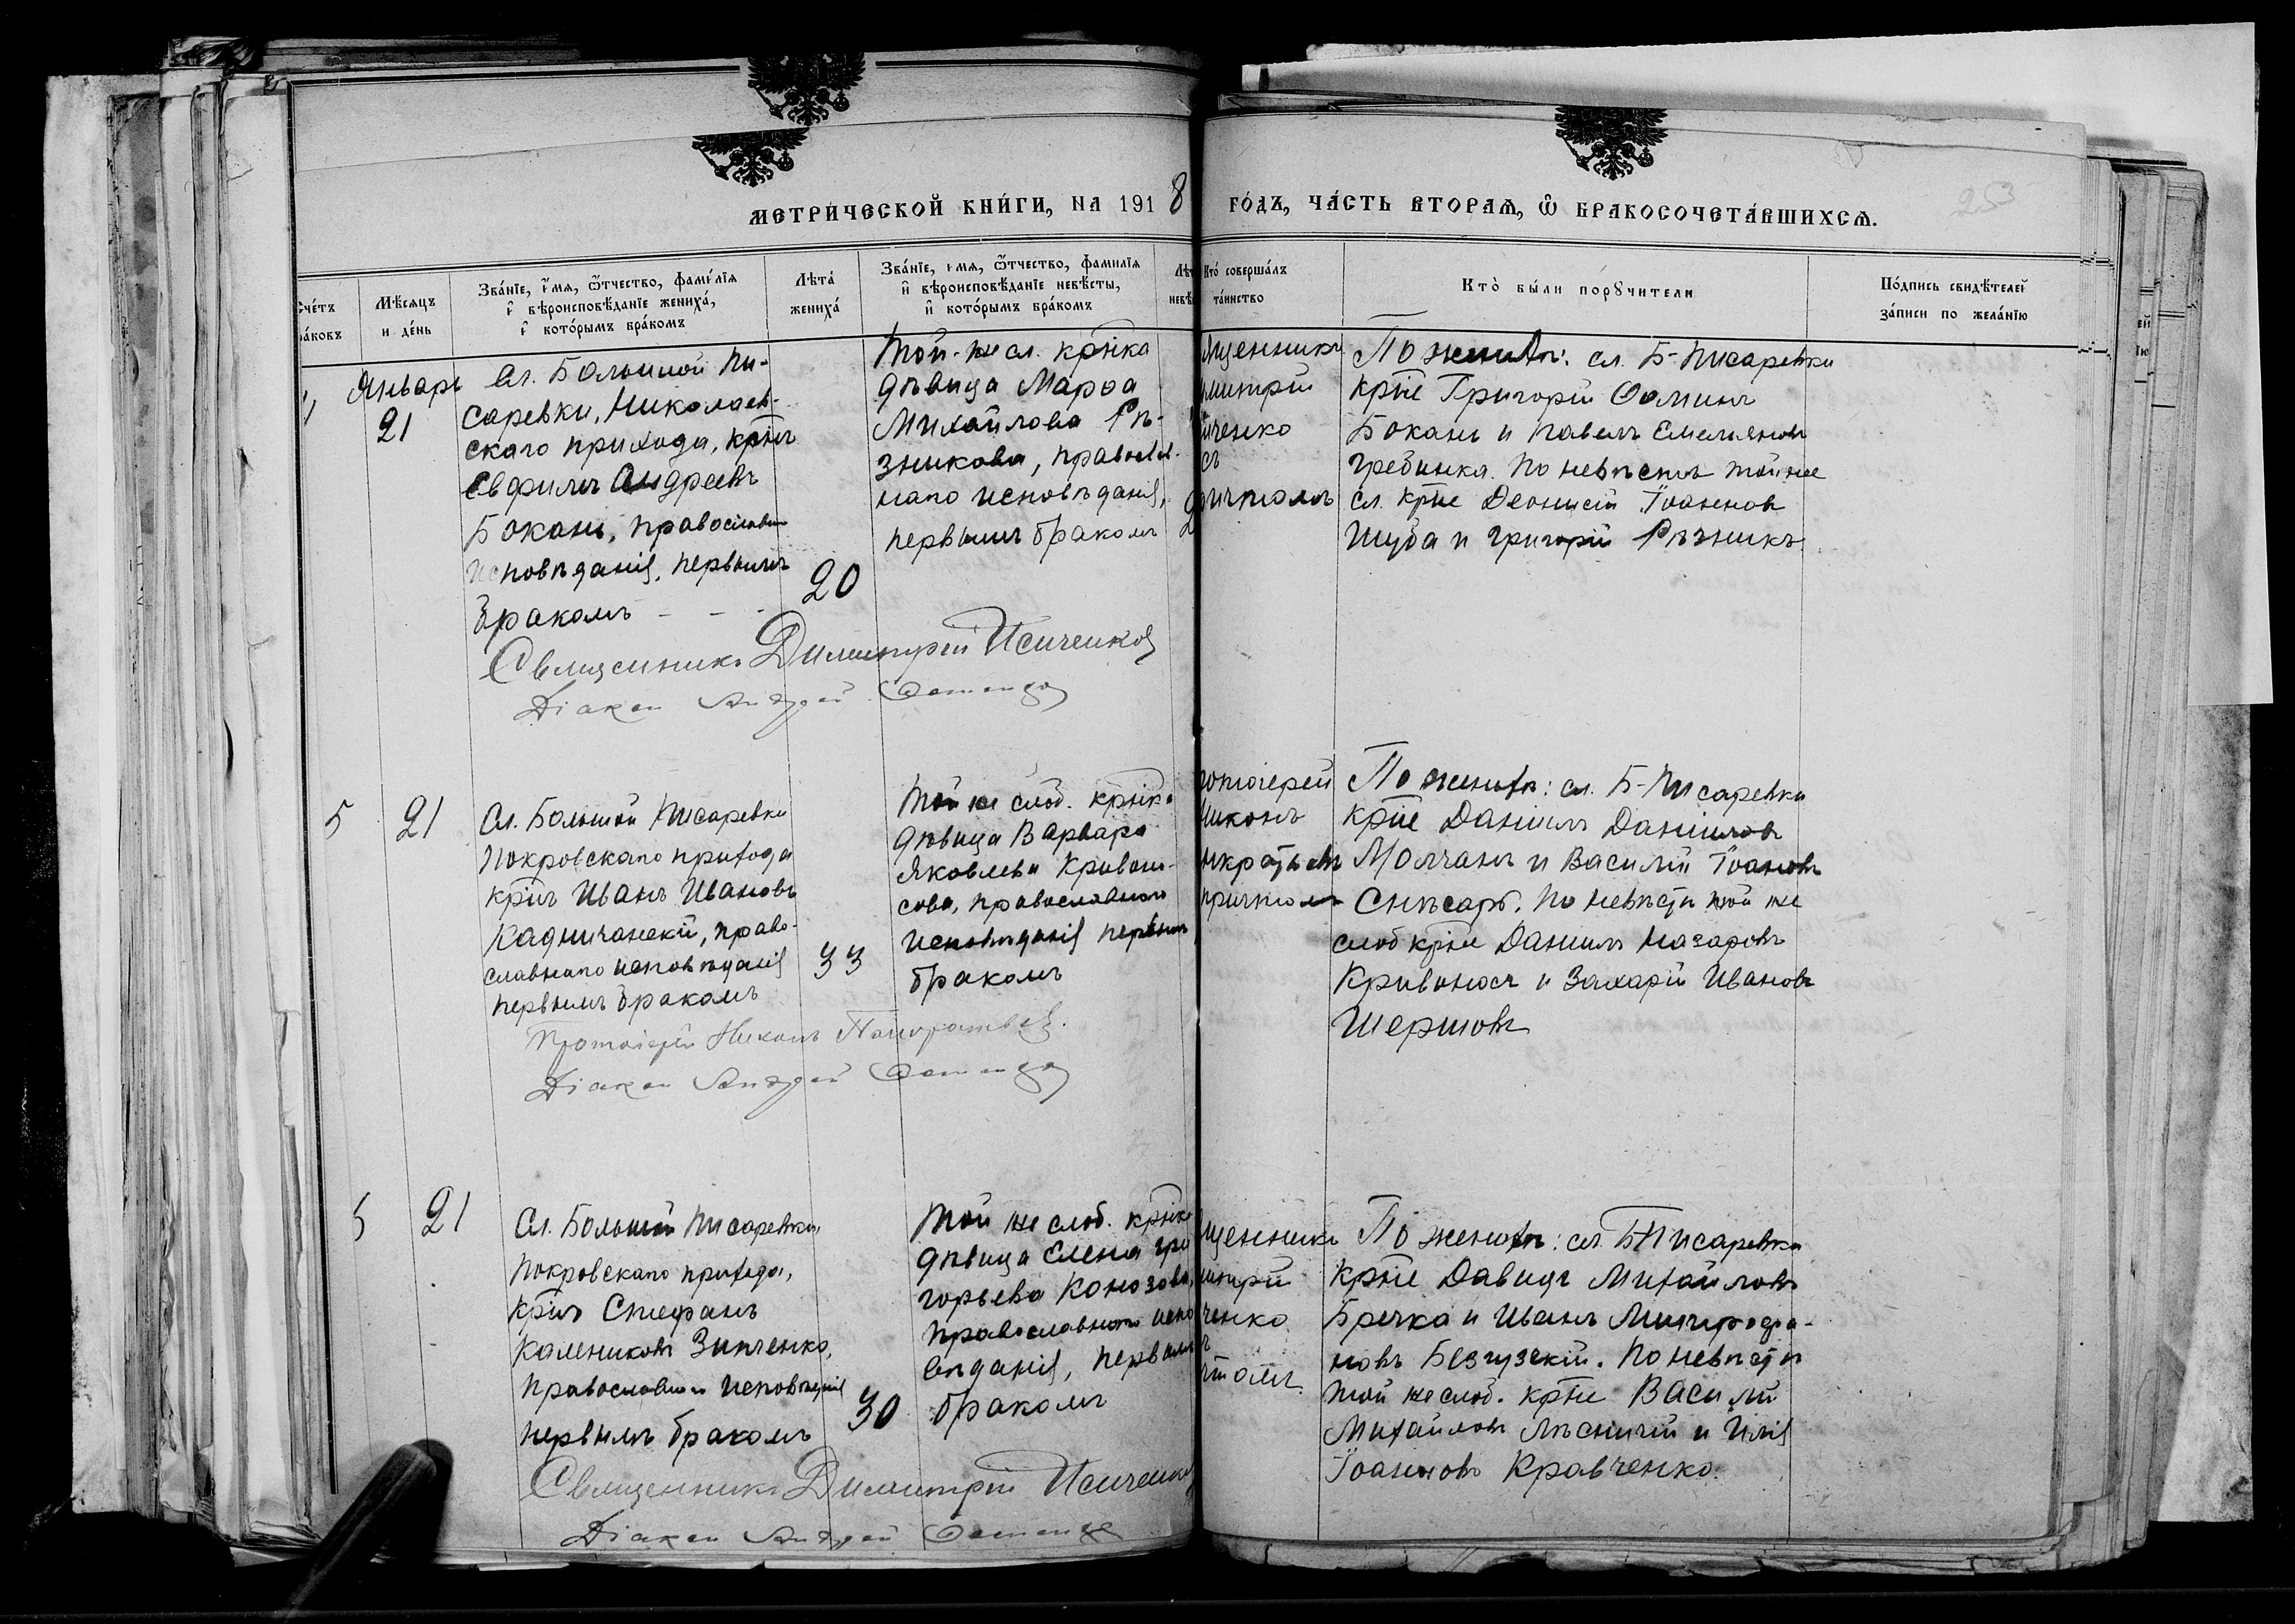 МЕТРИ́ЧЕСКОЙ КНИ́ГИ, НА 1918 ГО́ДЪ, ЧА́СТЬ ВТОРАѦ, Ѿ БРАКОСОЧЕТА́ВШИХСѦ.
253
Сче́тъ
браковъ
Мѣ́сяцъ
и де́нь
Зва́нїе, и҆́мѧ, ѻ҆́тчество, фами́лїѧ
и҆ вѣроисповѣ́данїе жениха́,
и҆ кото́рымъ бра́комъ
Лѣта̀
жениха́
Зва́нїе, и҆мѧ, ѻ҆́тчество, фамилїѧ
и҆ вѣроисповѣ́данїе невѣ́сты,
и҆ кото́рымъ бра́комъ
Лѣт
невѣ
Кто̀ соверша́лъ
та́инство
Кто̀ бы́ли порꙋчители
По́дпись свидѣ́телей
за́писи по жела́нїю
Январь
21
Сл. Большой Пи-
саревки, Николаев-
скаго прихода, кр̄нъ
Евфимъ Андреевъ
Бокань, православн
исповѣданія, первымъ
бракомъ - - -
20
Той-же сл. кр̄нка
дѣвица Марѳа
Михайлова Рѣ-
зникова, православ-
наго исповѣданія,
первымъ бракомъ
2
ященникъ
митрій
иченко
съ
ричтомъ
По женихѣ: сл. Б-Писаревки
кр̄не Григорій Ѳоминъ
Бокань и Павелъ Емельяновъ
Гребинка. По невѣстѣ той же
сл. кр̄не Деонисій Іоанновъ
Шуба и Григорій Рѣзникъ.
Священникъ Димитрій Исиченко
Діакон Андрей
5
21
Сл. Большой Писаревки
Покровскаго прихода
кр̄нъ Иванъ Ивановъ
Кадничанскій, право-
славнаго исповѣданія
первымъ бракомъ
33
Той же слоб. кр̄нка
дѣвица Варвара
Яковлева Кривоно-
сова, православнаго
исповѣданія первымъ
бракомъ
ротоіерей
Никонъ
нкратьевъ
причтомъ
По женихѣ: сл. Б-Писаревки
кр̄не Даніилъ Даніиловъ
Молчанъ и Василій Іоановъ
Снѣсарь. По невѣстѣ той же
слоб кр̄не Даніилъ Назаровъ
Кривоносъ и Захарій Ивановъ
Шершовъ
Протоіерей Никонъ Панкратьевъ.
Діакон Андрей
5
21
Сл. Большой Писаревки
Покровскаго прихода,
кр̄нъ Стефанъ
Калениковъ Зинченко,
православнаго исповѣданія
первымъ бракомъ
30
Той же слоб. кр̄нка
дѣвица Елена Гри
горьева Конозова,
православнаго испо
вѣданія, первымъ
бракомъ
щенникъ
митрій
ченко
ъ
чтомъ.
По женихѣ: сл. Б-Писаревки
кр̄не Давидъ Михайловъ
Бречка и Иванъ Митрофа-
новъ Безгузскій. По невѣстѣ
той же слоб. кр̄не Василій
Михайловъ Лѣсничій и Илія
Іоанновъ Кравченко.
Священникъ Димитрій Исиченко
Діакон Андрей